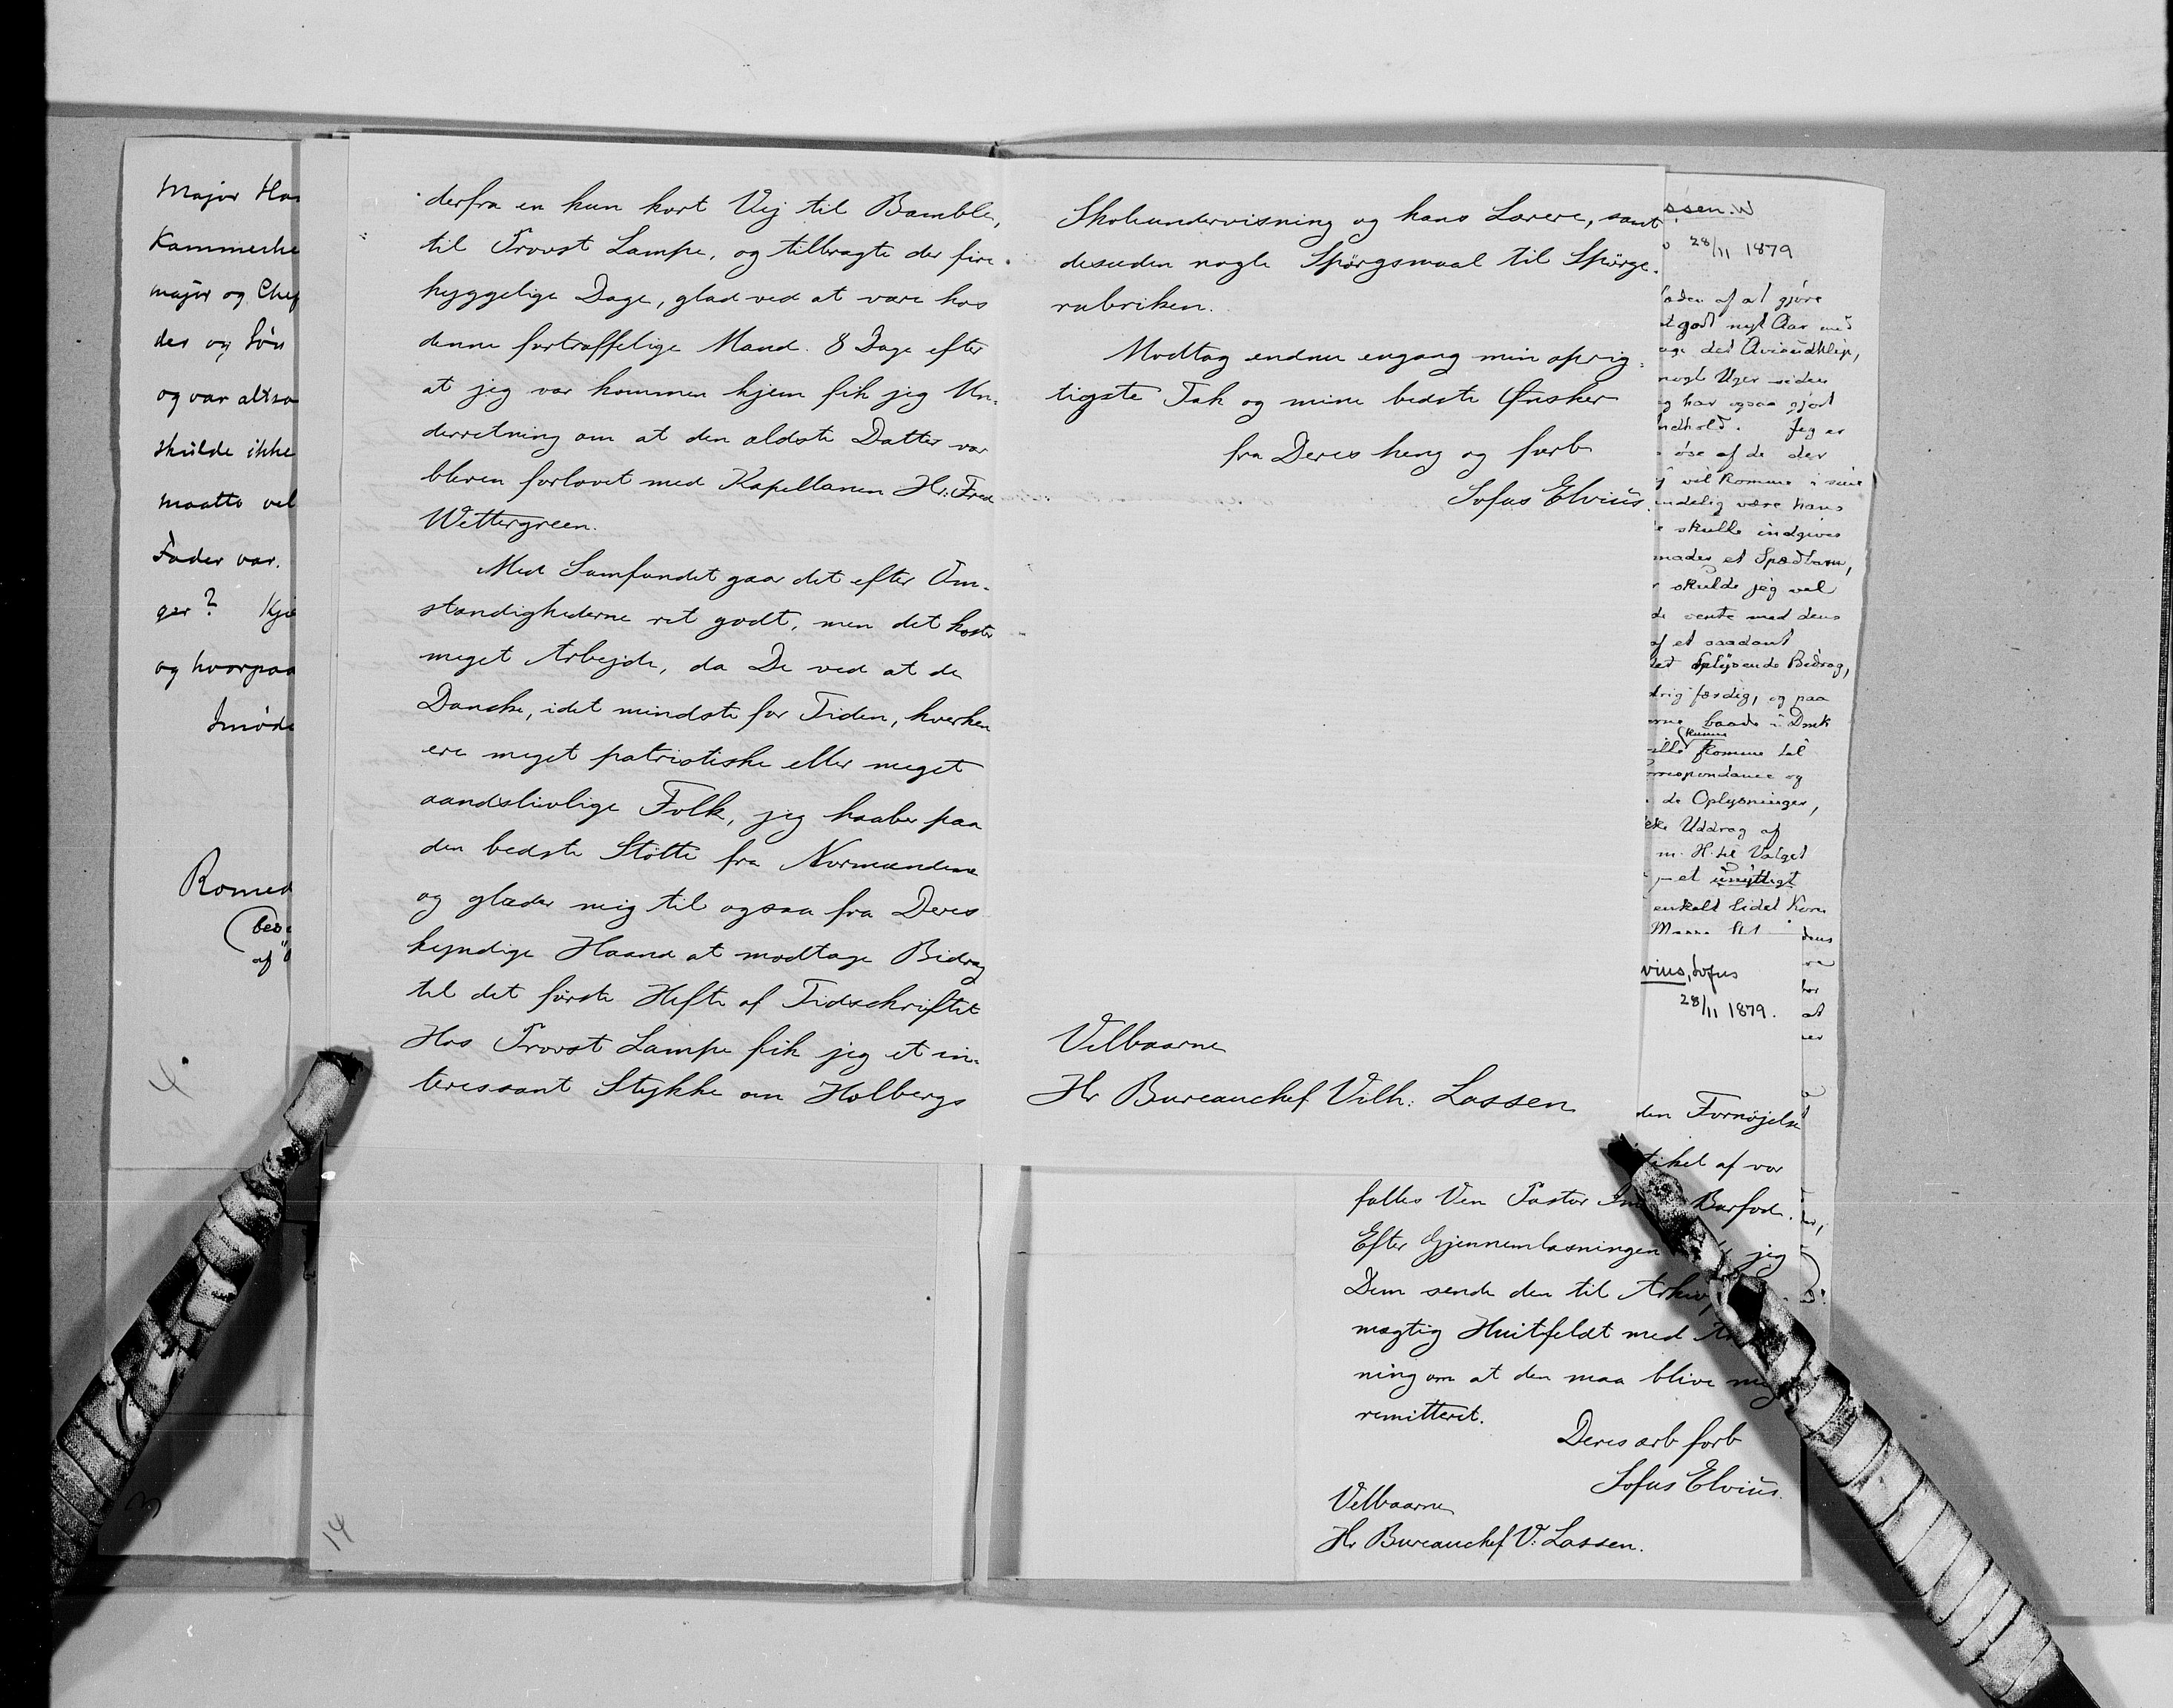 Major
Kammerhe
major og Chef
des og Søn
og var altsa
skulde ikke
maatte vel
Fader var.
ger? Kje
og hvorpaa
Romed
af
derfra en kun kort Vej til Bamble,
til Provst Lampe, og tilbragte der fire
hyggelige Dage, glad ved at være hos
denne fortræffelige Mand. 8 Dage efter
at jeg var kommen hjem fik jeg Un-
derretning om at den ældste Datter var
bleven forlovet med Kapellanen Hr. Fred
Wettergreen.
Med Samfundet gaar det efter Om-
stændighederne ret godt, men det koster
meget Arbejde, da De ved at de
Danske, idet mindste for Tiden, hverken
ere meget patriotiske eller meget
aandslivlige Folk, jeg haaber paa
den bedste Støtte fra Normændene
og glæder mig til ogsaa fra Deres
kyndige Haand at modtage Bidrag
til det første Hefte af Tidsckriftet
Hos Provst Lampe fik jeg et in-
teressant Stykke om Holbergs
14
3
Skoleundervisning og hans Lærere, samt
desuden nogle Spörgsmaal til Spörge-
rubriken.
Modtag endnu engang min oprig-
tigste Tak og mine bedste Ønsker
fra Deres heng og forb
Sofus Elvius.
Velbaarne
Hr Bureauchef Vilh: Lassen
ssen. W
28/11 1879
af at gjöre
godt nyt Aar med
det Avisudklip,
nogle Uger siden
har ogsaa gjort
ndhold. Jeg er
af de der
vil komme i sine
endelig være hans
skulle indgives
mades et Spædbarn,
skulde jeg vel
vente med dens
af et saadant
oplysende Bidrag,
drig færdig, og paa
baade i Druk
kunne
komme til
rrespondance og
de Oplysninger,
Uddrag af
m. H. til Valget
et unyttigt
enkelt lidet Korn
vius, Sofus
28/11 1879.
den Fornøjelse
tikel af vor
fælles Ven Pastor Barfod.
Efter Gjennemlæsningen jeg
Dem sende den til Arkiv
mægtig Huitfeldt med
ning om at den maa blive mig
remitteret.
Deres ærb forb
Sofus Elvius.
Velbaarne
Hr Bureauchef V. Lassen.